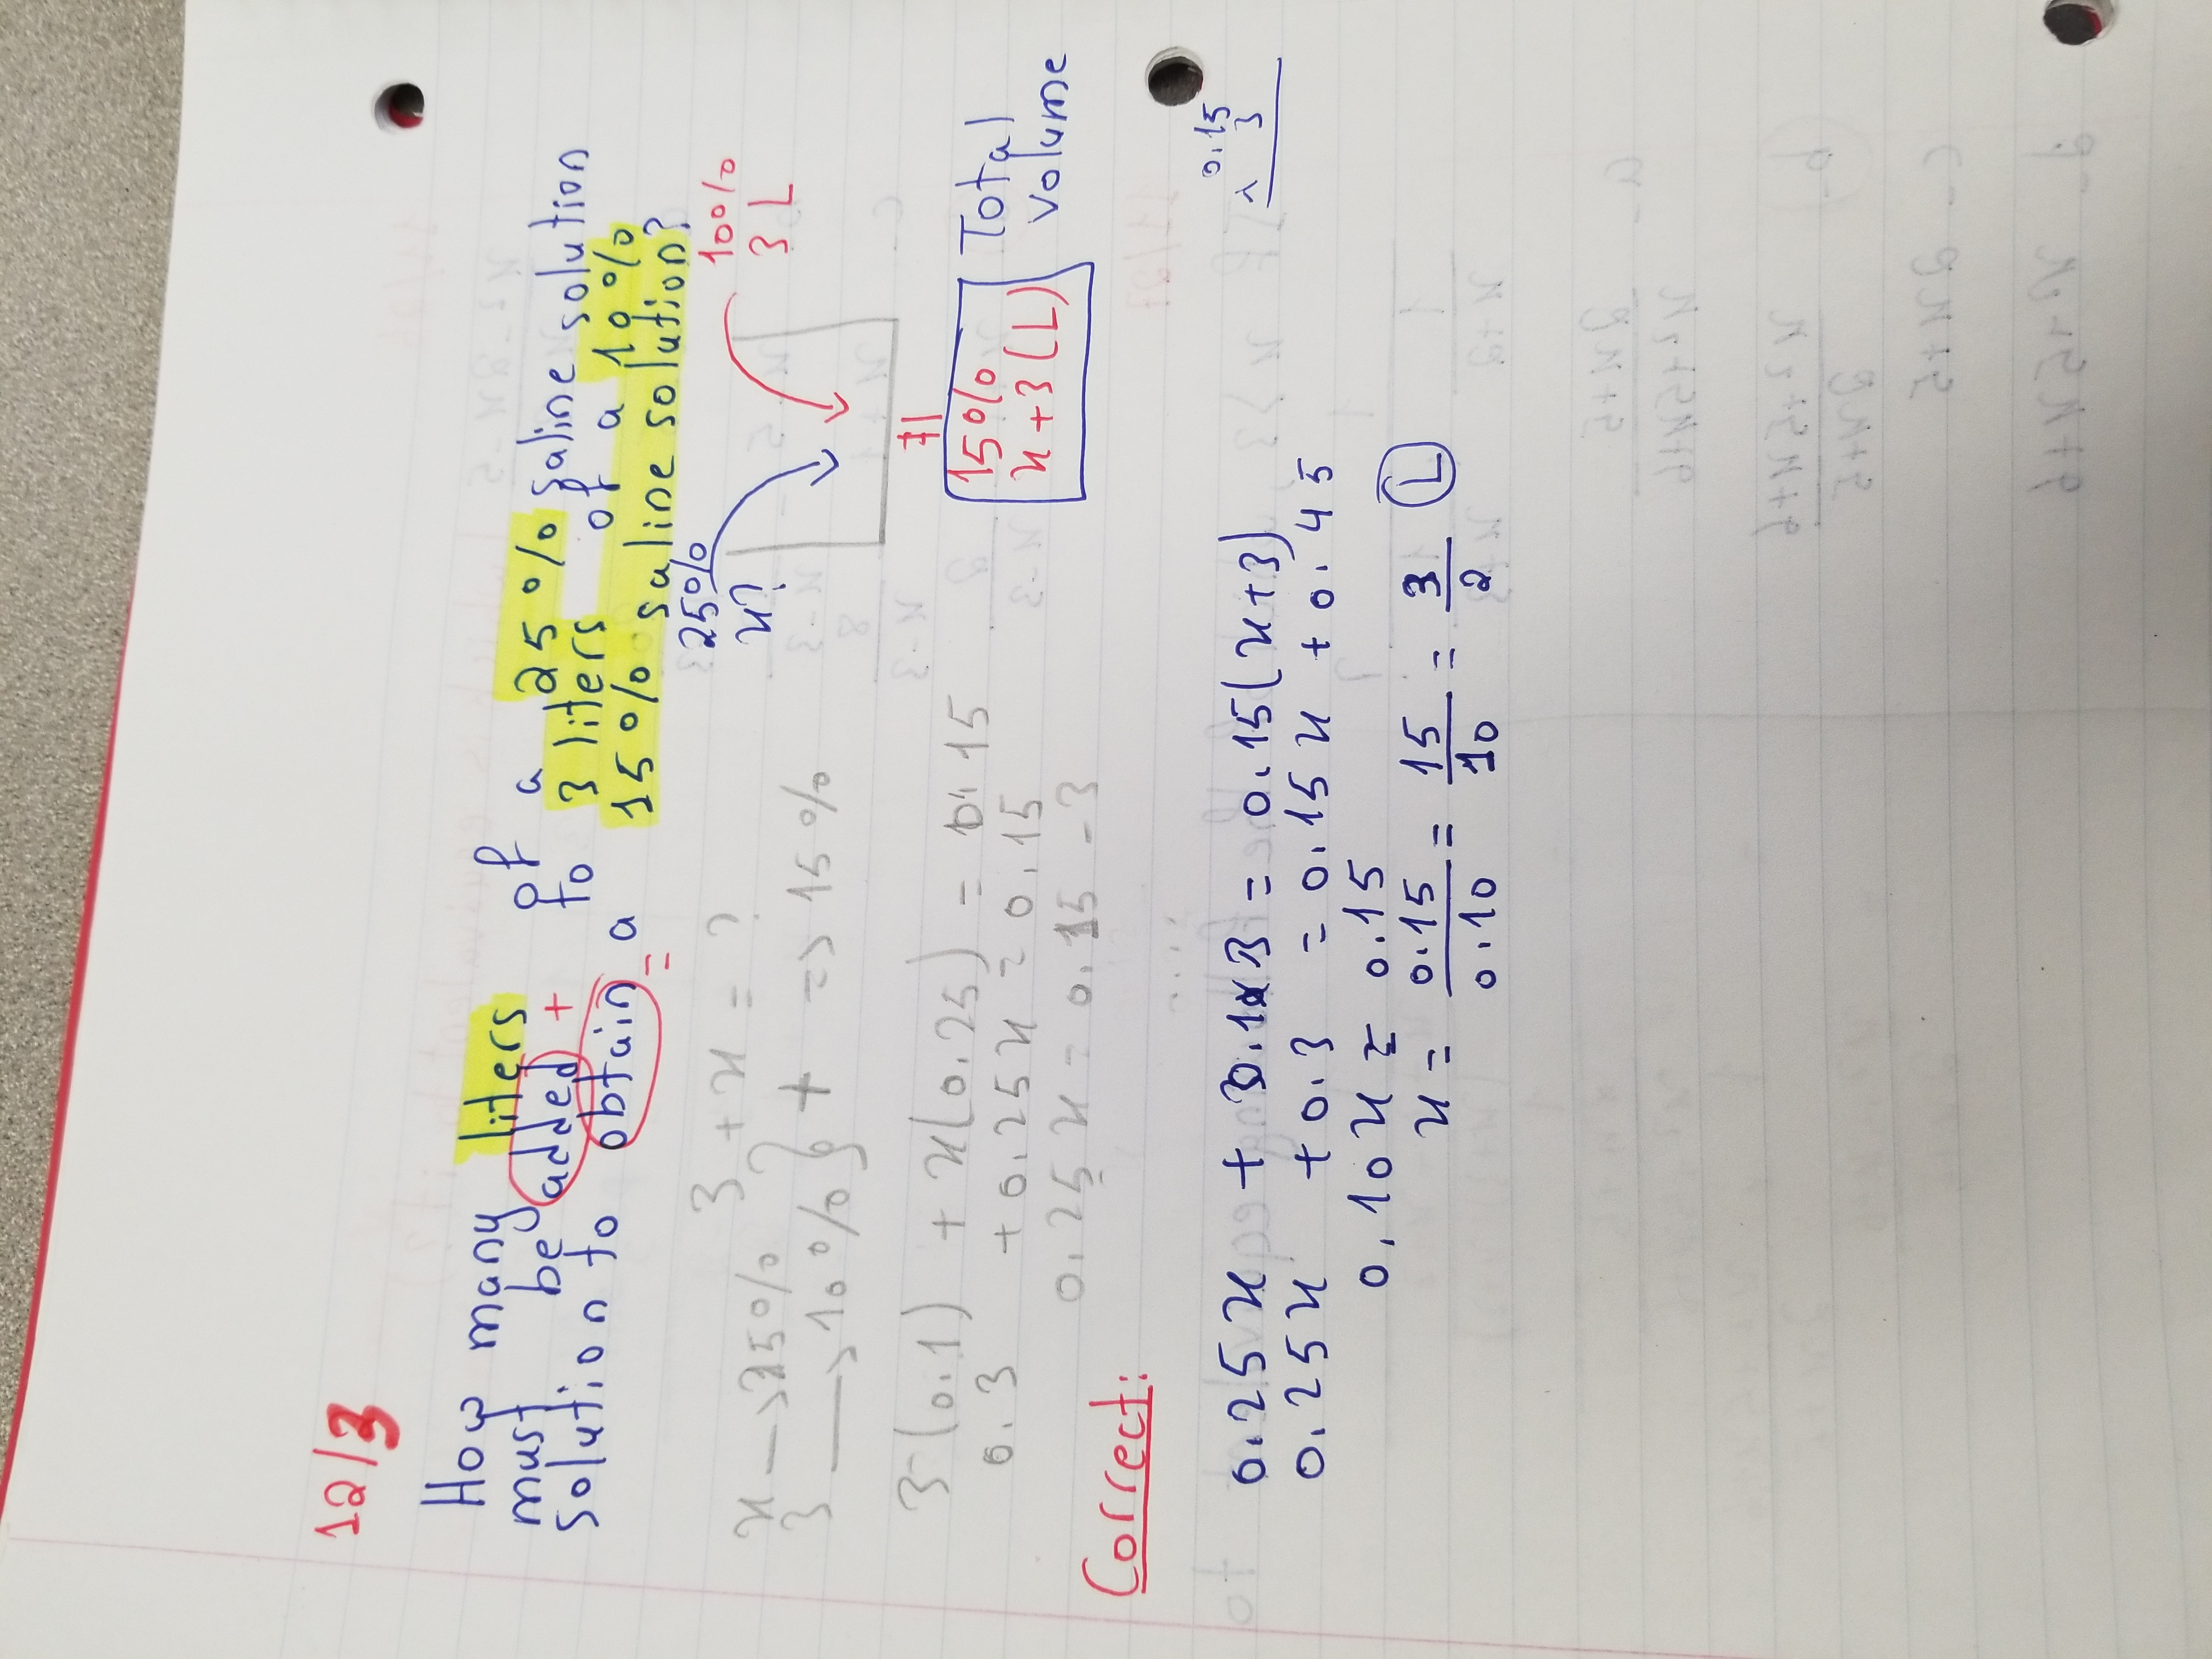 12/3
How many liters of a 25% saline solution
must be added + to 3 liters of a 10%
solution to obtain = a 15% saline solution?
3 + x = ?
x —> 25%
3 —> 10% } + => 15%
25%
x?
10%
3 L
3 (0.1) + x(0.25) = 0.15
0.3 + 0.25x = 0.15
0.25x = 0.15 - 3
15%
x + 3 (L)
Total
Volume
Correct:
0.15
× 3
0.25x + 0.1x3 = 0.15(x+3)
0.25x + 0.3 = 0.15x + 0.45
0.10x = 0.15
x = 0.15/0.10 = 15/10 = 3/2 (L)